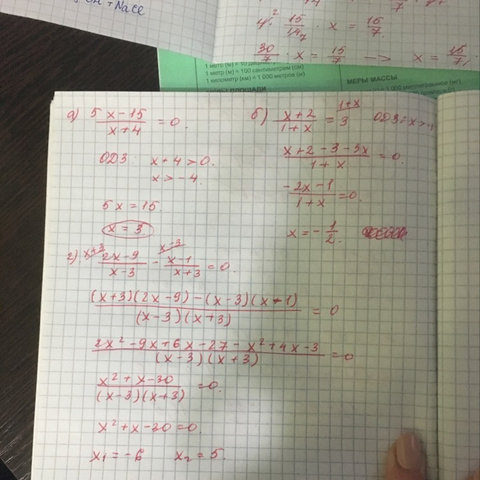 ОН + NaCl
4² · 15/14₇ · x = 15/7.
30/7 · x = 15/7 —> x = 15/7 :
1 метр (м) = 100 сантиметрам (см)
1 километр (км) = 1 000 метров (м)
МЕРЫ МАССЫ
а) (5x-15)/(x+4) = 0.
ОДЗ x+4>0.
x>-4.
5x = 15.
x = 3.
б) (x+2)/(1+x) = 3 (1+x) ОДЗ: x>-1
(x+2-3-3x)/(1+x) = 0.
(-2x-1)/(1+x) = 0.
x = -1/2.
г) (x+3) (2x-9)/(x-3) - (x-3) (x-1)/(x+3) = 0.
((x+3)(2x-9)-(x-3)(x+1))/((x-3)(x+3)) = 0
(2x²-9x+6x-27-x²+4x-3)/((x-3)(x+3)) = 0
(x²+x-30)/((x-3)(x+3)) = 0.
x²+x-30=0.
x₁=-6 x₂=5.